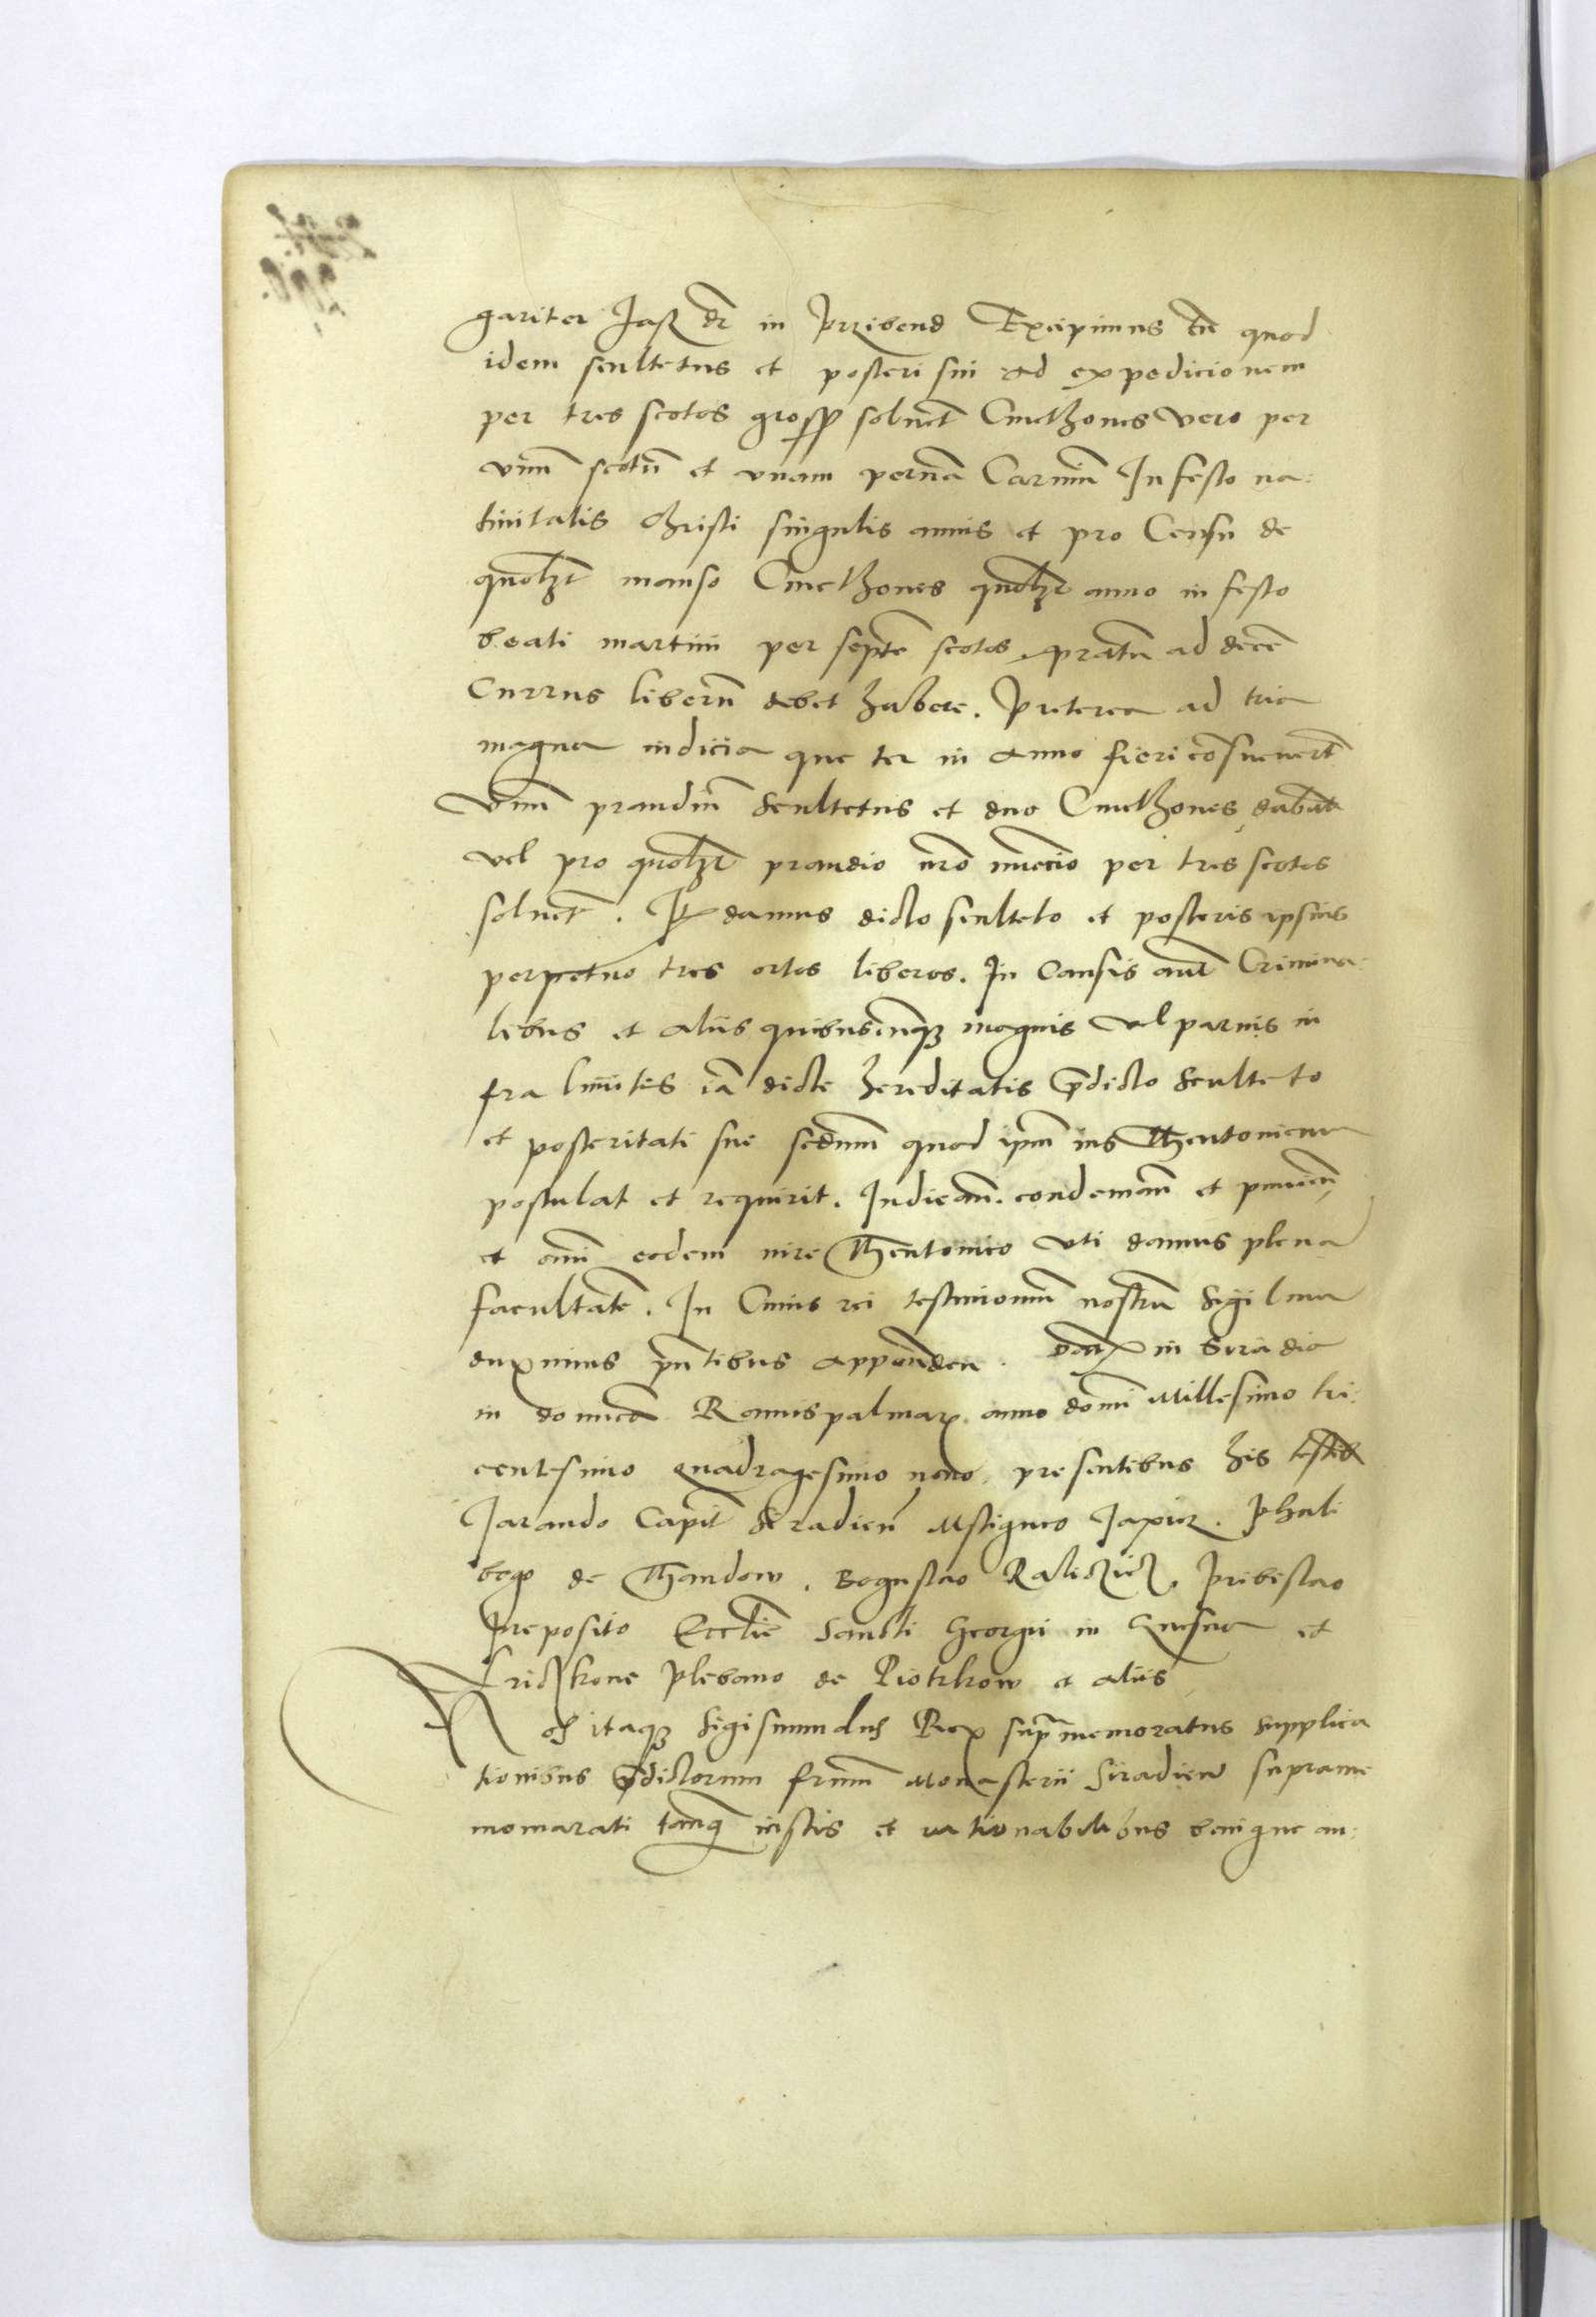 gariter Jaz dr in Przibend Excipimus tn quod
idem scultetus et posteri sui ad expedicionem
per tres scotos gross soluet Cmethones vero per
vnu scotu et vnam perna Carniu In festo na:
tiuitatis christi singulis annis et pro Censu de
quolzt manso Cmethones quolzt anno in festo
beati martini per septe scotos, pratu ad dece
Currus liberu debet habere. Preterea ad tria
magna iudicia que ter in anno fieri cosueuert
Vnu prandiu Scultetus et duo Cmethones dabut
vel pro quolzt prandio nro nuccio per tres scotos
soluet. It damus dicto sculteto et posteris ipsius
perpetuo tres ortos liberos. In Causis aut Crimina:
libus et aliis quibuscunqz magnis vel paruis in
fra limites ia dicte hereditatis pdicto Sculteto
et posteritati sue secdum quod ipm ius Theutonicum
postulat et requirit. Iudican. condemnan et puniен
et omi eodem iure Theutonico vti damus plena
facultate. In Cuius rei testimoniu nostru Sigillum
duximus pntibus appenden. Datx in Siradia
in dominica Ramispalmarx anno domi Millesimo tri:
centesimo quadragesimo nono, presentibus his testib
Jarando Capit Siradien Mstigneo Jaxicz. Phali
bogo de Thandow. Boguslao Raliczicz. Pribislao
Preposito Ecclie Sancti Georgii in Gnesna et
Friczkone Plebano de Piotrkow et aliis
Nos itaqz Sigismundus Rex supra memoratus supplica
tionibus pdictorum fratrum Monasterii Siradien suprame
momarati tanq iustis et rationabilibus benigne an: